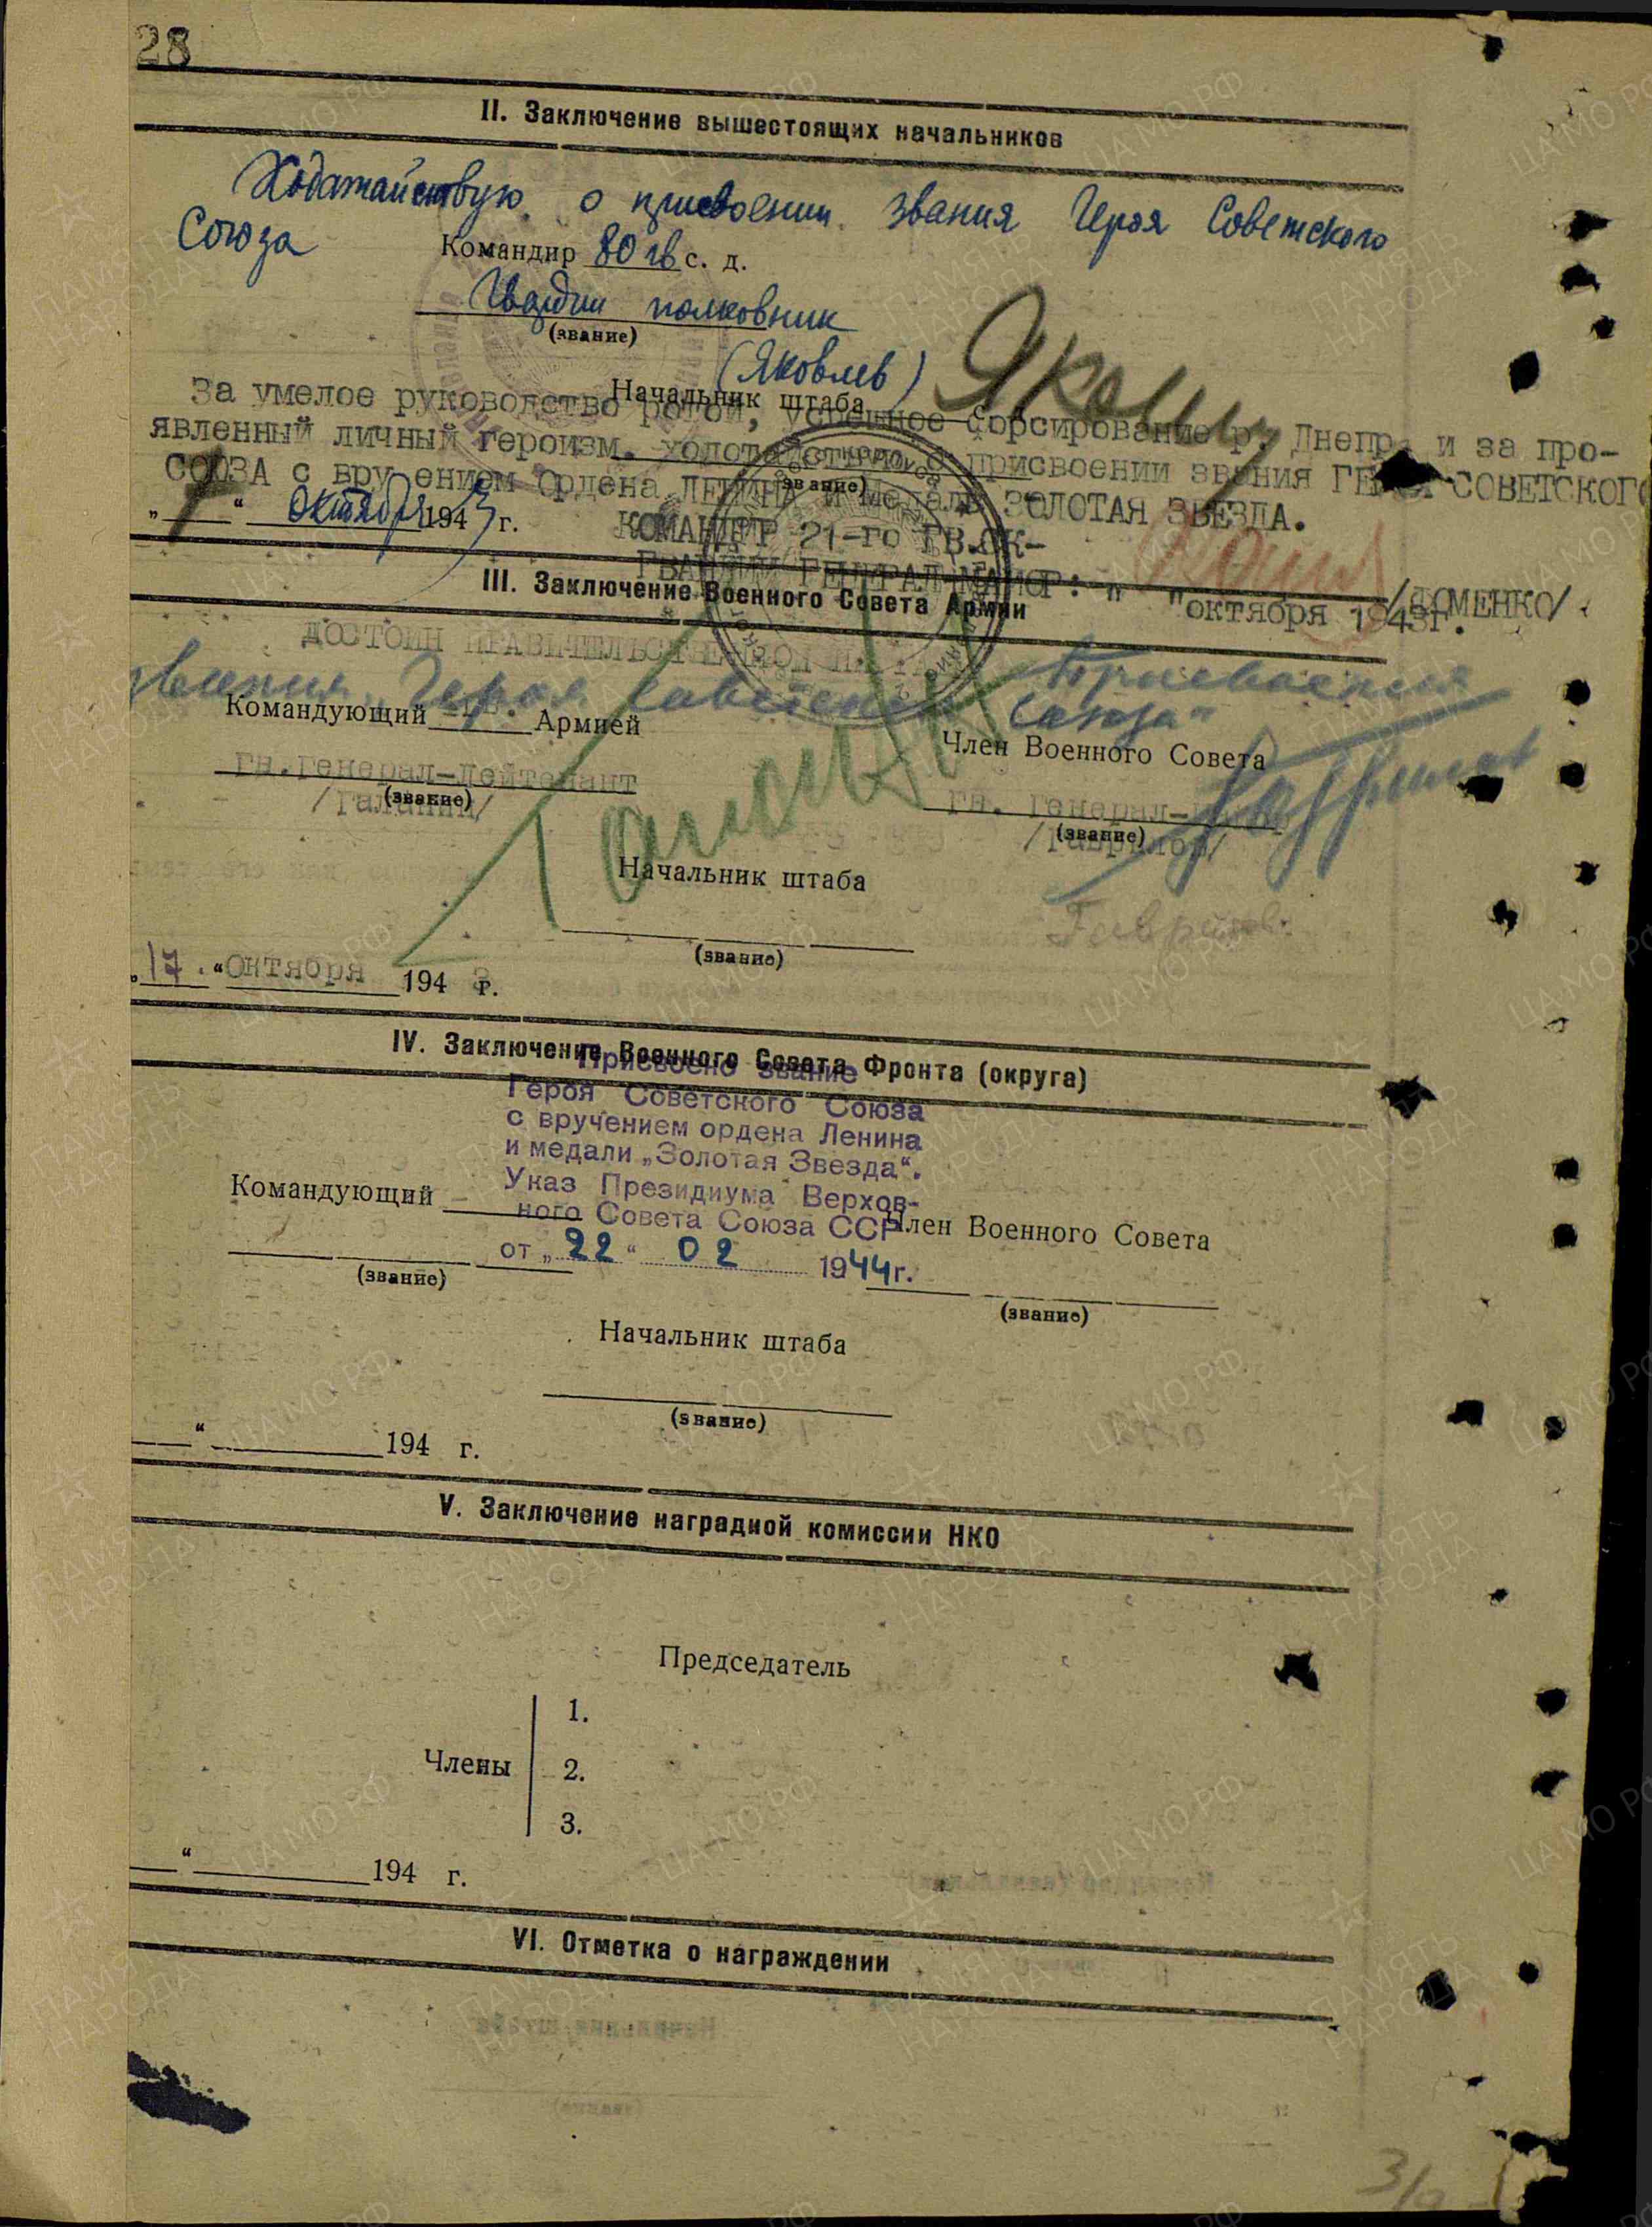 28
II. Заключение вышестоящих начальников
Ходатайствую о присвоении звания Героя Советского
Союза
Командир 80 гв с. д.
Гвардии полковник
(звание)
(Яковлев)
Начальник штаба
За умелое руководство ротой, успешное форсирование р. Днепр и за про-
явленный личный героизм. Ходатайствую о присвоении звания ГЕРОЯ СОВЕТСКОГО
СОЮЗА с вручением Ордена ЛЕНИНА и медаль ЗОЛОТАЯ ЗВЕЗДА.
(звание)
„ “ октября 1943 г.
КОМАНДИР 21-го ГВ.СК-
ГВАРДИИ ГЕНЕРАЛ-МАИОР: /ФОМЕНКО/.
" "октября 1943г.
III. Заключение Военного Совета Армии
ДОСТОИН ПРАВИТЕЛЬСТВЕННОЙ
Присвоения
звания Героя Советского Союза"
Командующий Армией
Член Военного Совета
гв.генерал-лейтенант
(звание)
/Галанин/
гв. генерал-
(звание)
/Гаврилов/
Начальник штаба
Гаврилов
(звание)
„17.“ Октября 1943 г.
IV. Заключение Военного Совета Фронта (округа)
Присвоено звание
Героя Советского Союза
с вручением ордена Ленина
и медали „Золотая Звезда“.
Указ Президиума Верхов-
ного Совета Союза ССР
от „22“ 02 1944г.
Командующий
Член Военного Совета
(звание)
(звание)
Начальник штаба
(звание)
“ 194 г.
V. Заключение наградной комиссии НКО
Председатель
1.
Члены 2.
3.
“ 194 г.
VI. Отметка о награждении